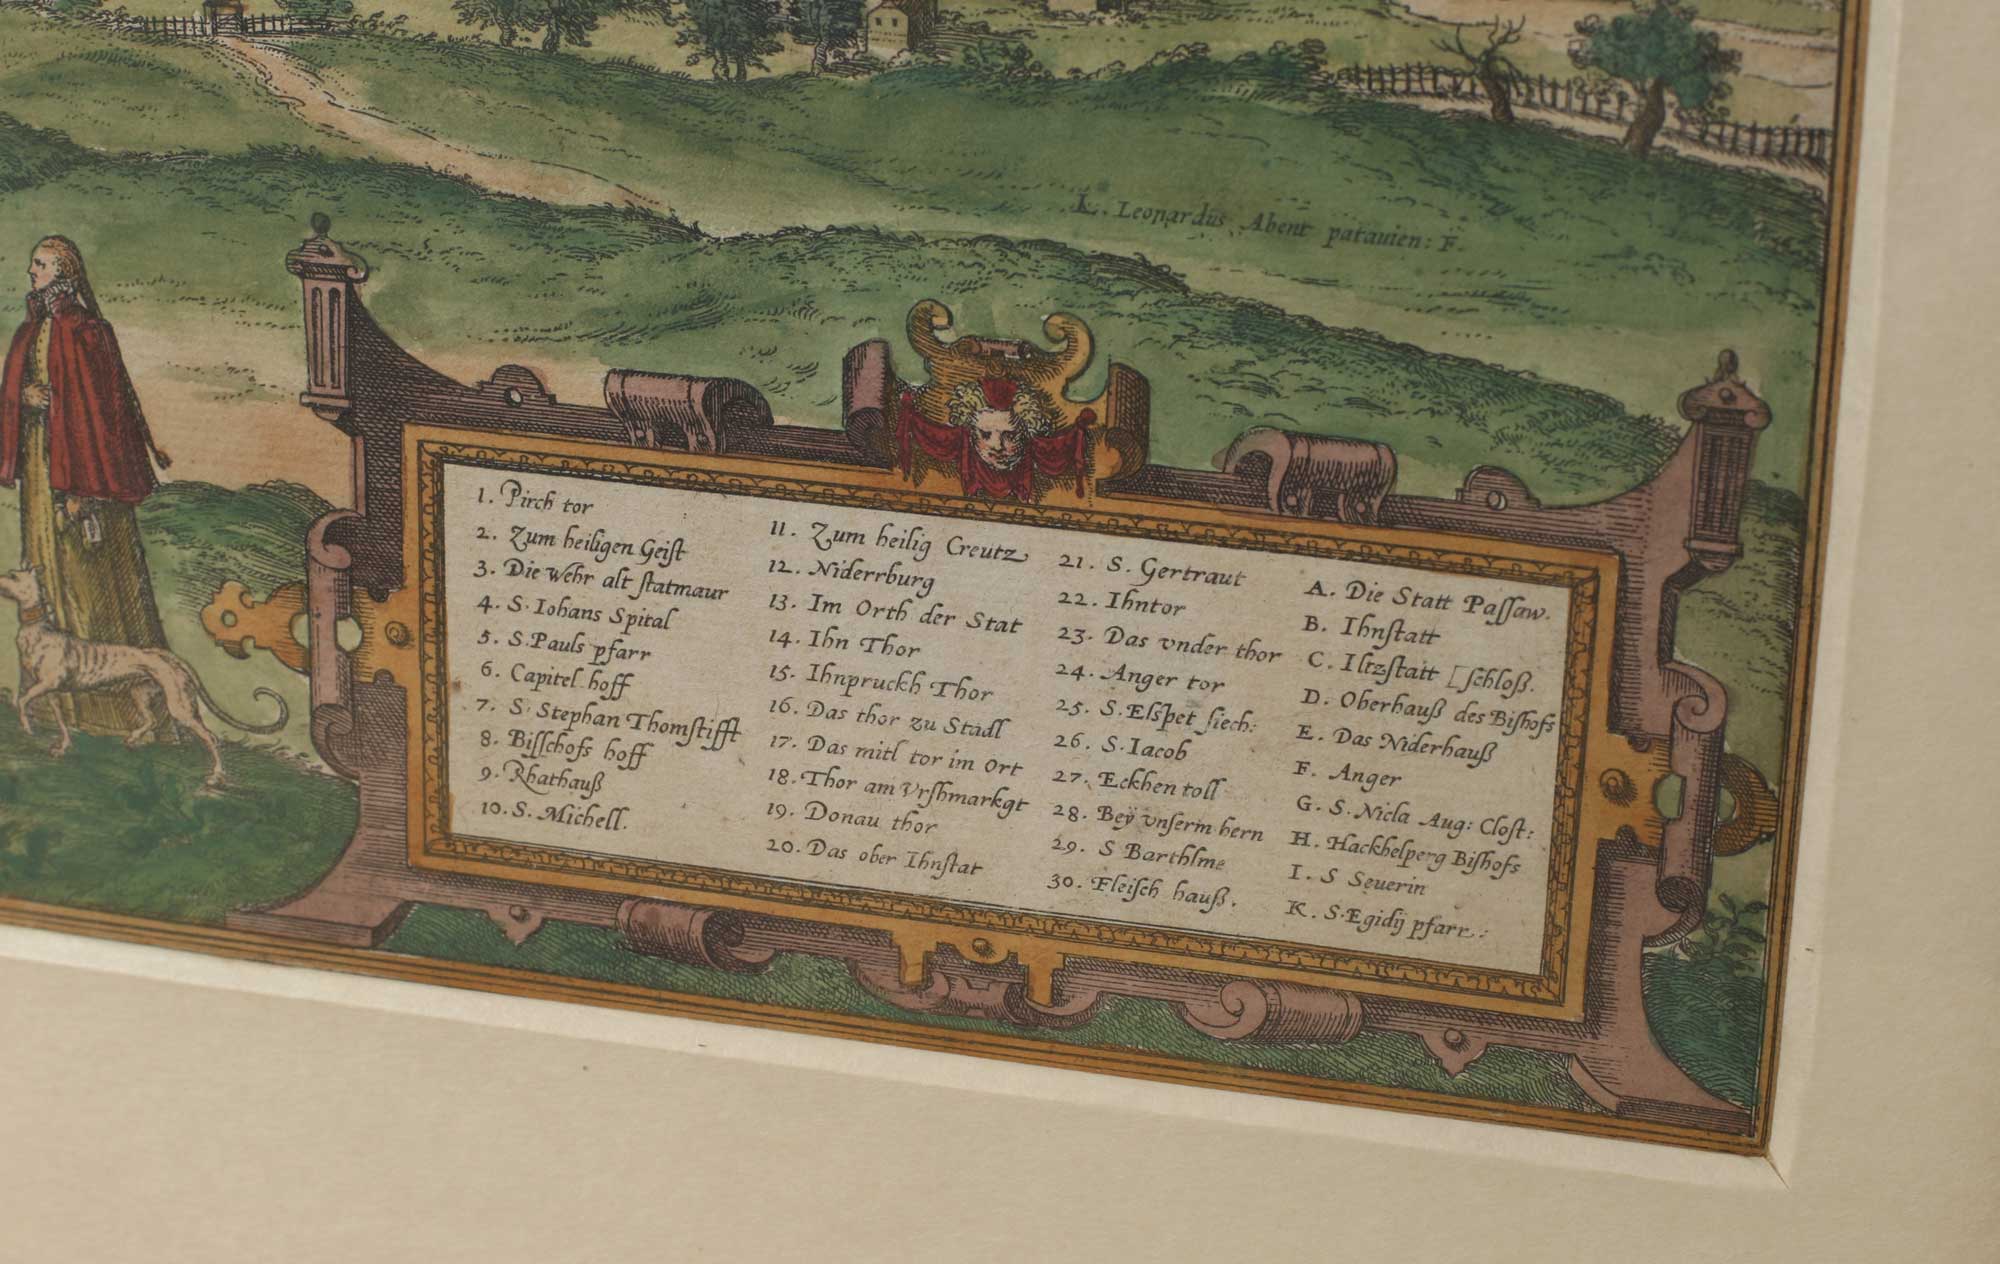 L. Leopardus Abent patauien: F.
1. Pirch tor
2. Zum heiligen Geiſt
3. Die wehr alt ſtatmaur
4. S. Iohans Spital
5. S. Pauls pfarr
6. Capitel hoff
7. S. Stephan Thomſtifft
8. Biſſchofs hoff
9. Rhathauß
10. S. Michell.
11. Zum heilig Creutz
12. Niderrburg
13. Im Orth der Stat
14. Ihn Thor
15. Ihnpruckh Thor
16. Das thor zu Stadl
17. Das mitl tor im Ort
18. Thor am Vrſhmarkgt
19. Donau thor
20. Das ober Ihnſtat
21. S. Gertraut
22. Ihntor
23. Das vnder thor
24. Anger tor
25. S. Elſpet ſiech:
26. S. Iacob
27. Eckhen toll
28. Beÿ vnſerm hern
29. S Barthlme
30. Fleiſch hauß.
A. Die Statt Paſſaw.
B. Ihnſtatt
C. Iltzſtatt [ſchloß.
D. Oberhauß des Biſhofs
E. Das Niderhauß
F. Anger
G. S. Nicla Aug: Cloſt:
H. Hackhelperg Biſhofs
I. S Seuerin
K. S. Egidij pfarr.: